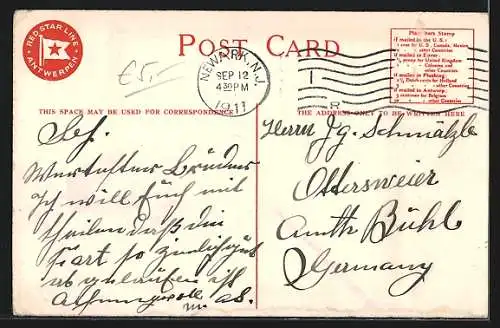 RED STAR LINE
ANTWERPEN
POST CARD
NEWARK, N.J.
SEP 12
4 30 PM
1911
Place here Stamp
If mailed in the U.S.:
1 cent for U.S., Canada, Mexico
other Countries
If mailed in Dover:
penny for United Kingdom
Colonies and
other Countries
If mailed in Flushing:
cents for Holland
other Countries
If mailed in Antwerp:
centimes for Belgium
other Countries
THIS SPACE MAY BE USED FOR CORRESPONDENCE
THE ADDRESS ONLY TO BE WRITTEN HERE
Wertester Bruder
Ich will Euch mit
theilen daß die
Fart so ziemlich gut
abgelaufen ist
Achtungsvoll
Herrn Jg. Schmälzle
Ottersweier
Amth Bühl
Germany